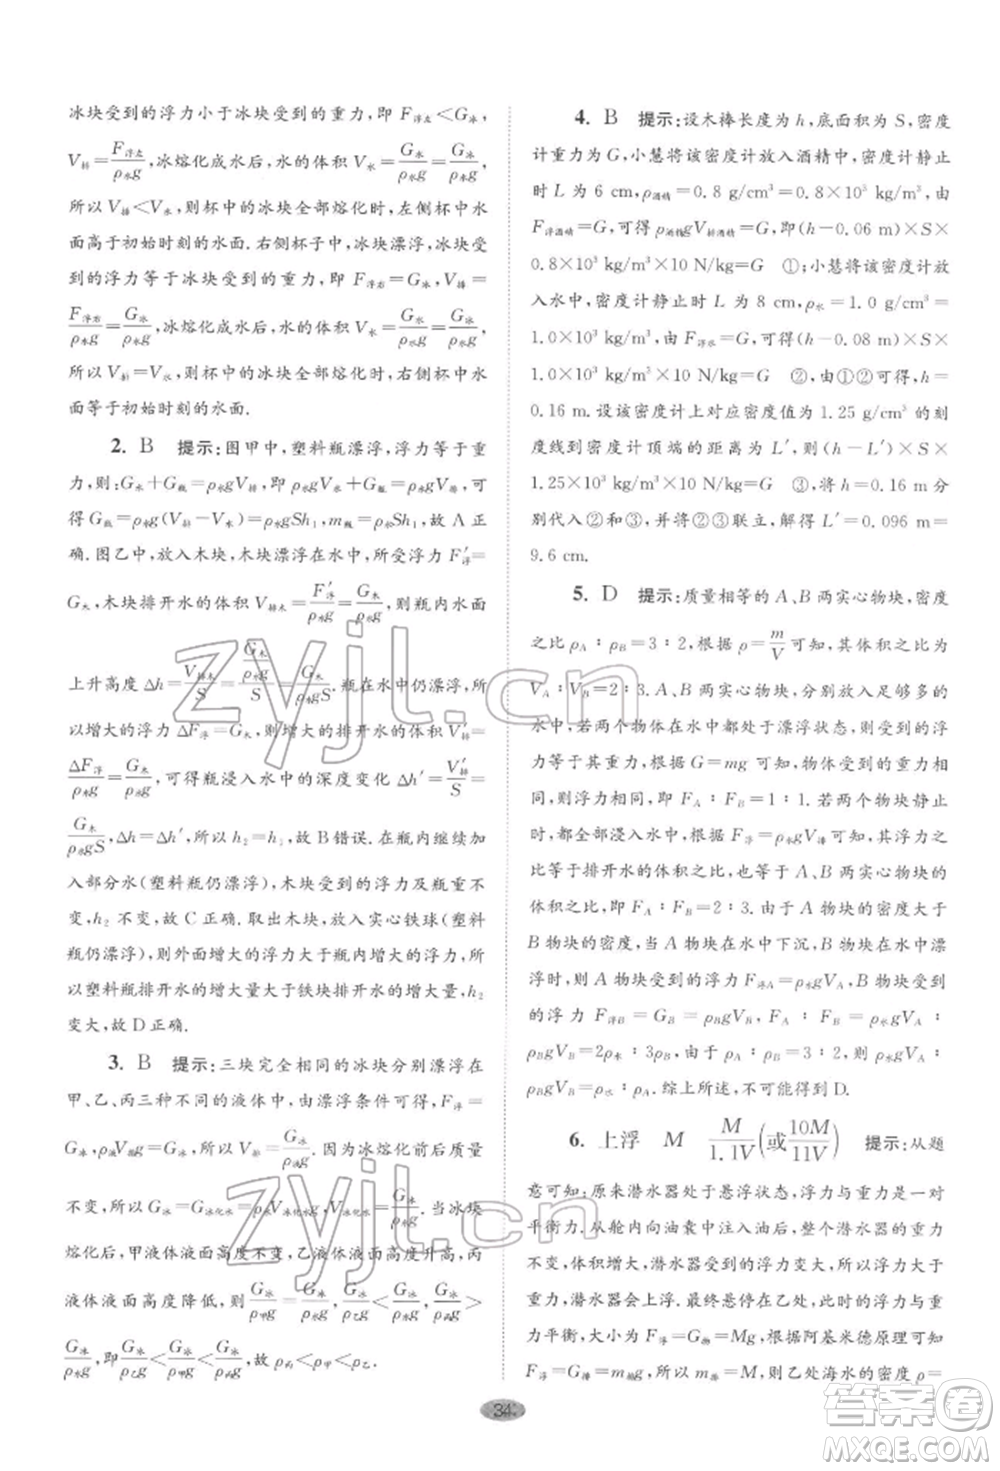 冰块受到的浮力小于冰块受到的重力,即 F浮左<G冰,
V排=F浮左/ρ水g,冰熔化成水后,水的体积 V水=G冰/ρ水g,
所以 V排<V水,则杯中的冰块全部熔化时,左侧杯中水
面高于初始时刻的水面. 右侧杯子中,冰块漂浮,冰块受到
的浮力等于冰块受到的重力,即 F浮右=G冰,V排=
F浮右/ρ水g=G冰/ρ水g,冰熔化成水后,水的体积 V水=G冰/ρ水g,
所以 V排=V水,则杯中的冰块全部熔化时,右侧杯中水
面等于初始时刻的水面.
2. B 提示:图甲中,塑料瓶漂浮,浮力等于重
力,则:G水+G瓶=ρ水gV排,即 G水+G瓶=ρ水gV排,可
得 G瓶=ρ水g(V排-V水)=ρ水gSh₁,m瓶=ρ水Sh₁,故 A 正
确. 图乙中,放入木块,木块漂浮在水中,所受浮力 F′浮=
G木,木块排开水的体积 V排木=F′浮/ρ水g=G木/ρ水g,则瓶内水面
上升高度 Δh=V排木/S=(G木/ρ水g)/S=G木/ρ水gS. 瓶在水中仍漂浮,所
以增大的浮力 ΔF浮=G木,则增大的排开水的体积 V′排=
ΔF浮/ρ水g=G木/ρ水g,可得瓶浸入水中的深度变化 Δh′=V′排/S=
G木/ρ水gS,Δh=Δh′,所以 h₂=h₁,故 B 错误. 在瓶内继续加
入部分水(塑料瓶仍漂浮),木块受到的浮力及瓶重不
变,h₂ 不变,故 C 正确. 取出木块,放入实心铁球(塑料
瓶仍漂浮),则外面增大的浮力等于瓶内增大的重力,所
以塑料瓶排开水的增大量大于铁块排开水的增大量,h₂
变大,故 D 正确.
3. B 提示:三块完全相同的冰块分别漂浮在
甲、乙、丙三种不同的液体中,由漂浮条件可得,F浮=
G冰,ρ液V排g=G冰,所以 V排=G冰/ρ液g. 因为冰熔化前后质量
不变,所以 G冰=G冰化水=ρ水gV冰化水,V冰化水=G冰/ρ水g. 当冰块
熔化后,甲液体液面高度不变,乙液体液面高度升高,丙
液体液面高度降低,则 G冰/ρ甲g=G冰/ρ水g,G冰/ρ乙g<G冰/ρ水g,G冰/ρ丙g>
G冰/ρ水g,即 G冰/ρ乙g<G冰/ρ甲g<G冰/ρ丙g,故 ρ丙<ρ甲<ρ乙.
4. B 提示:设木棒长度为 h,底面积为 S,密度
计重力为 G. 小慧将该密度计放入酒精中,密度计静止
时 L 为 6 cm,ρ酒精=0.8 g/cm³=0.8×10³ kg/m³,由
F浮酒精=G,可得 ρ酒精gV排酒精=G,即(h-0.06 m)×S×
0.8×10³ kg/m³×10 N/kg=G ①;小慧将该密度计放
入水中,密度计静止时 L 为 8 cm,ρ水=1.0 g/cm³=
1.0×10³ kg/m³,由 F浮水=G,可得(h-0.08 m)×S×
1.0×10³ kg/m³×10 N/kg=G ②,由①②可得,h=
0.16 m. 设该密度计上对应密度值为 1.25 g/cm³ 的刻
度线到密度计顶端的距离为 L′,则(h-L′)×S×
1.25×10³ kg/m³×10 N/kg=G ③,将 h=0.16 m 分
别代入②和③,并将②③联立,解得 L′=0.096 m=
9.6 cm.
5. D 提示:质量相等的 A、B 两实心物块,密度
之比 ρA∶ρB=3∶2,根据 ρ=m/V 可知,其体积之比为
VA∶VB=2∶3. A、B 两实心物块,分别放入足够多的
水中,若两个物体在水中都处于漂浮状态,则受到的浮
力等于其重力,根据 G=mg 可知,物块所受的重力相
同,则浮力相同,即 FA∶FB=1∶1. 若两个物块静止
时,都全部浸入水中,根据 F浮=ρ水gV排 可知,其浮力之
比等于排开水的体积之比,等于两个实心物块的体积之
比,即 FA∶FB=2∶3. 由于 A 物块的密度大于
B 物块的密度,当 A 物块在水中下沉,B 物块在水中漂
浮时,则 A 物块受到的浮力 F浮A=ρ水gVA,B 物块受到
的浮力 F浮B=GB=ρBgVB,FA∶FB=ρ水gVA∶
ρBgVB=2ρ水∶3ρB,由于 ρA∶ρB=3∶2,则 ρ水gVA∶
ρBgVB=ρ水∶ρA. 综上所述,不可能得到 D.
6. 上浮 M M/1.1V(或10M/11V) 提示:从题
意可知:原来潜水器处于悬浮状态,浮力与重力是一对
平衡力. 从舱内向油囊中注入油后,整个潜水器的重力
不变,体积增大,排开海水的体积变大,浮力大于重力
时,潜水器会上浮. 最终悬停在乙处,此时的浮力与重
力平衡,大小为 F浮=G物=Mg,根据阿基米德原理可知
F浮=G排=m排g,所以 m排=M,则乙处海水的密度 ρ=
34
zyjl.cn
zyjl.cn
答案圈
MXQE.COM